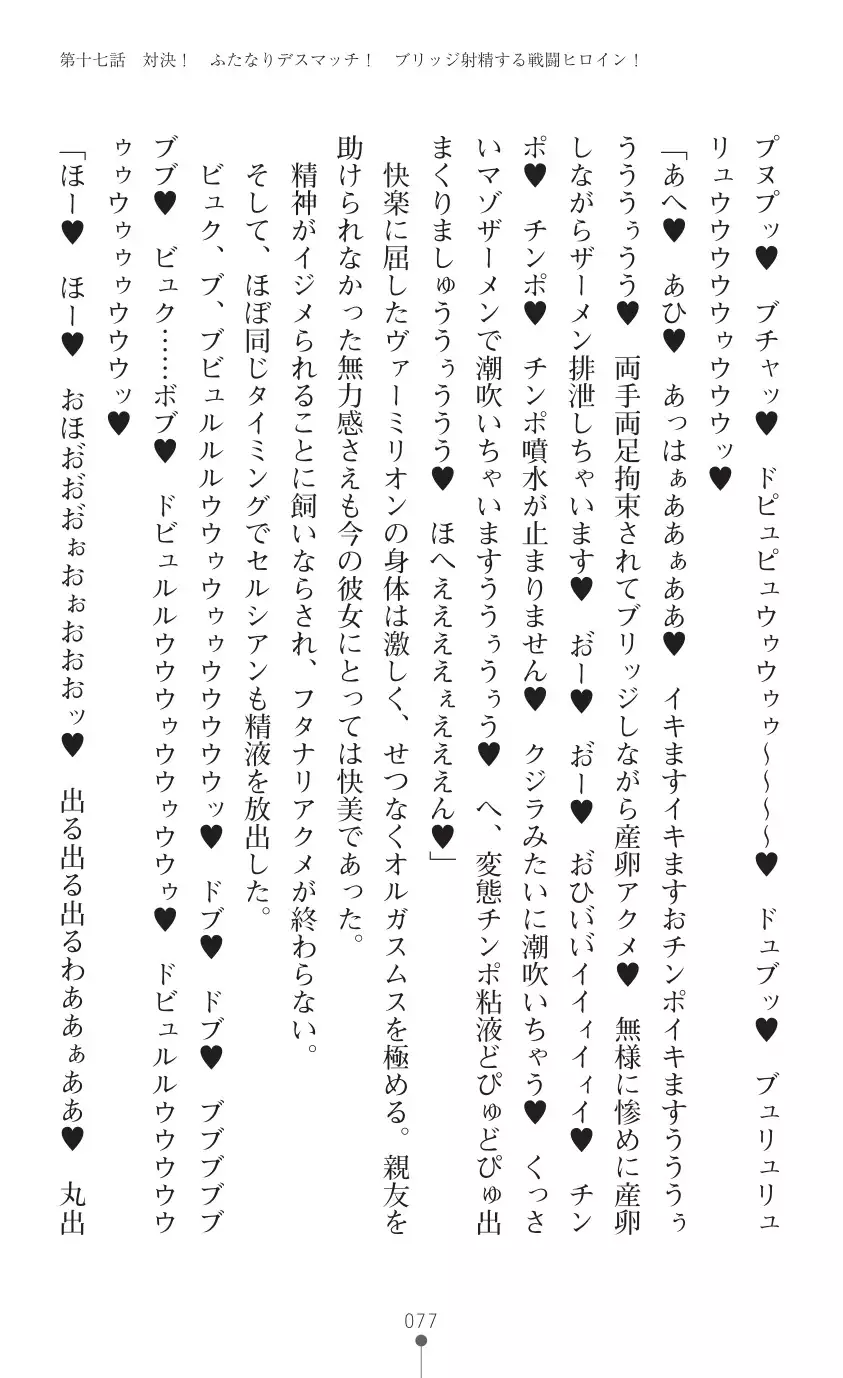 第十七話　対決！　ふたなりデスマッチ！　ブリッジ射精する戦闘ヒロイン！
プヌプッ♥　ブチャッ♥　ドピュピュウゥウゥゥ～～～～♥　ドュブッ♥　ブュリュリュ
リュウウウウウゥウウウッ♥
「あへ♥　あひ♥　あっはぁああぁああ♥　イキますイキますおチンポイキますうううぅ
うううぅうう♥　両手両足拘束されてブリッジしながら産卵アクメ♥　無様に惨めに産卵
しながらザーメン排泄しちゃいます♥　お゛ー♥　お゛ー♥　お゛ひい゛い゛イイィイィイ♥　チン
ポ♥　チンポ♥　チンポ噴水が止まりません♥　クジラみたいに潮吹いちゃう♥　くっさ
いマゾザーメンで潮吹いちゃいますううぅうぅう♥　へ、変態チンポ粘液どぴゅどぴゅ出
まくりましゅううぅううう♥　ほへええええぇえええん♥」
快楽に屈したヴァーミリオンの身体は激しく、せつなくオルガスムスを極める。親友を
助けられなかった無力感さえも今の彼女にとっては快美であった。
精神がイジメられることに飼いならされ、フタナリアクメが終わらない。
そして、ほぼ同じタイミングでセルシアンも精液を放出した。
ビュク、ブ、ブビュルルルウウゥウゥゥウウウウウッ♥　ドブ♥　ドブ♥　ブブブブブ
ブブ♥　ビュク……ボブ♥　ドビュルルウウウゥウウゥウウゥ♥　ドビュルルウウウウウ
ゥゥウゥゥゥウウウッ♥
「ほー♥　ほー♥　おほお゛お゛お゛ぉおぉおおおッ♥　出る出る出るわああぁああ♥　丸出
077